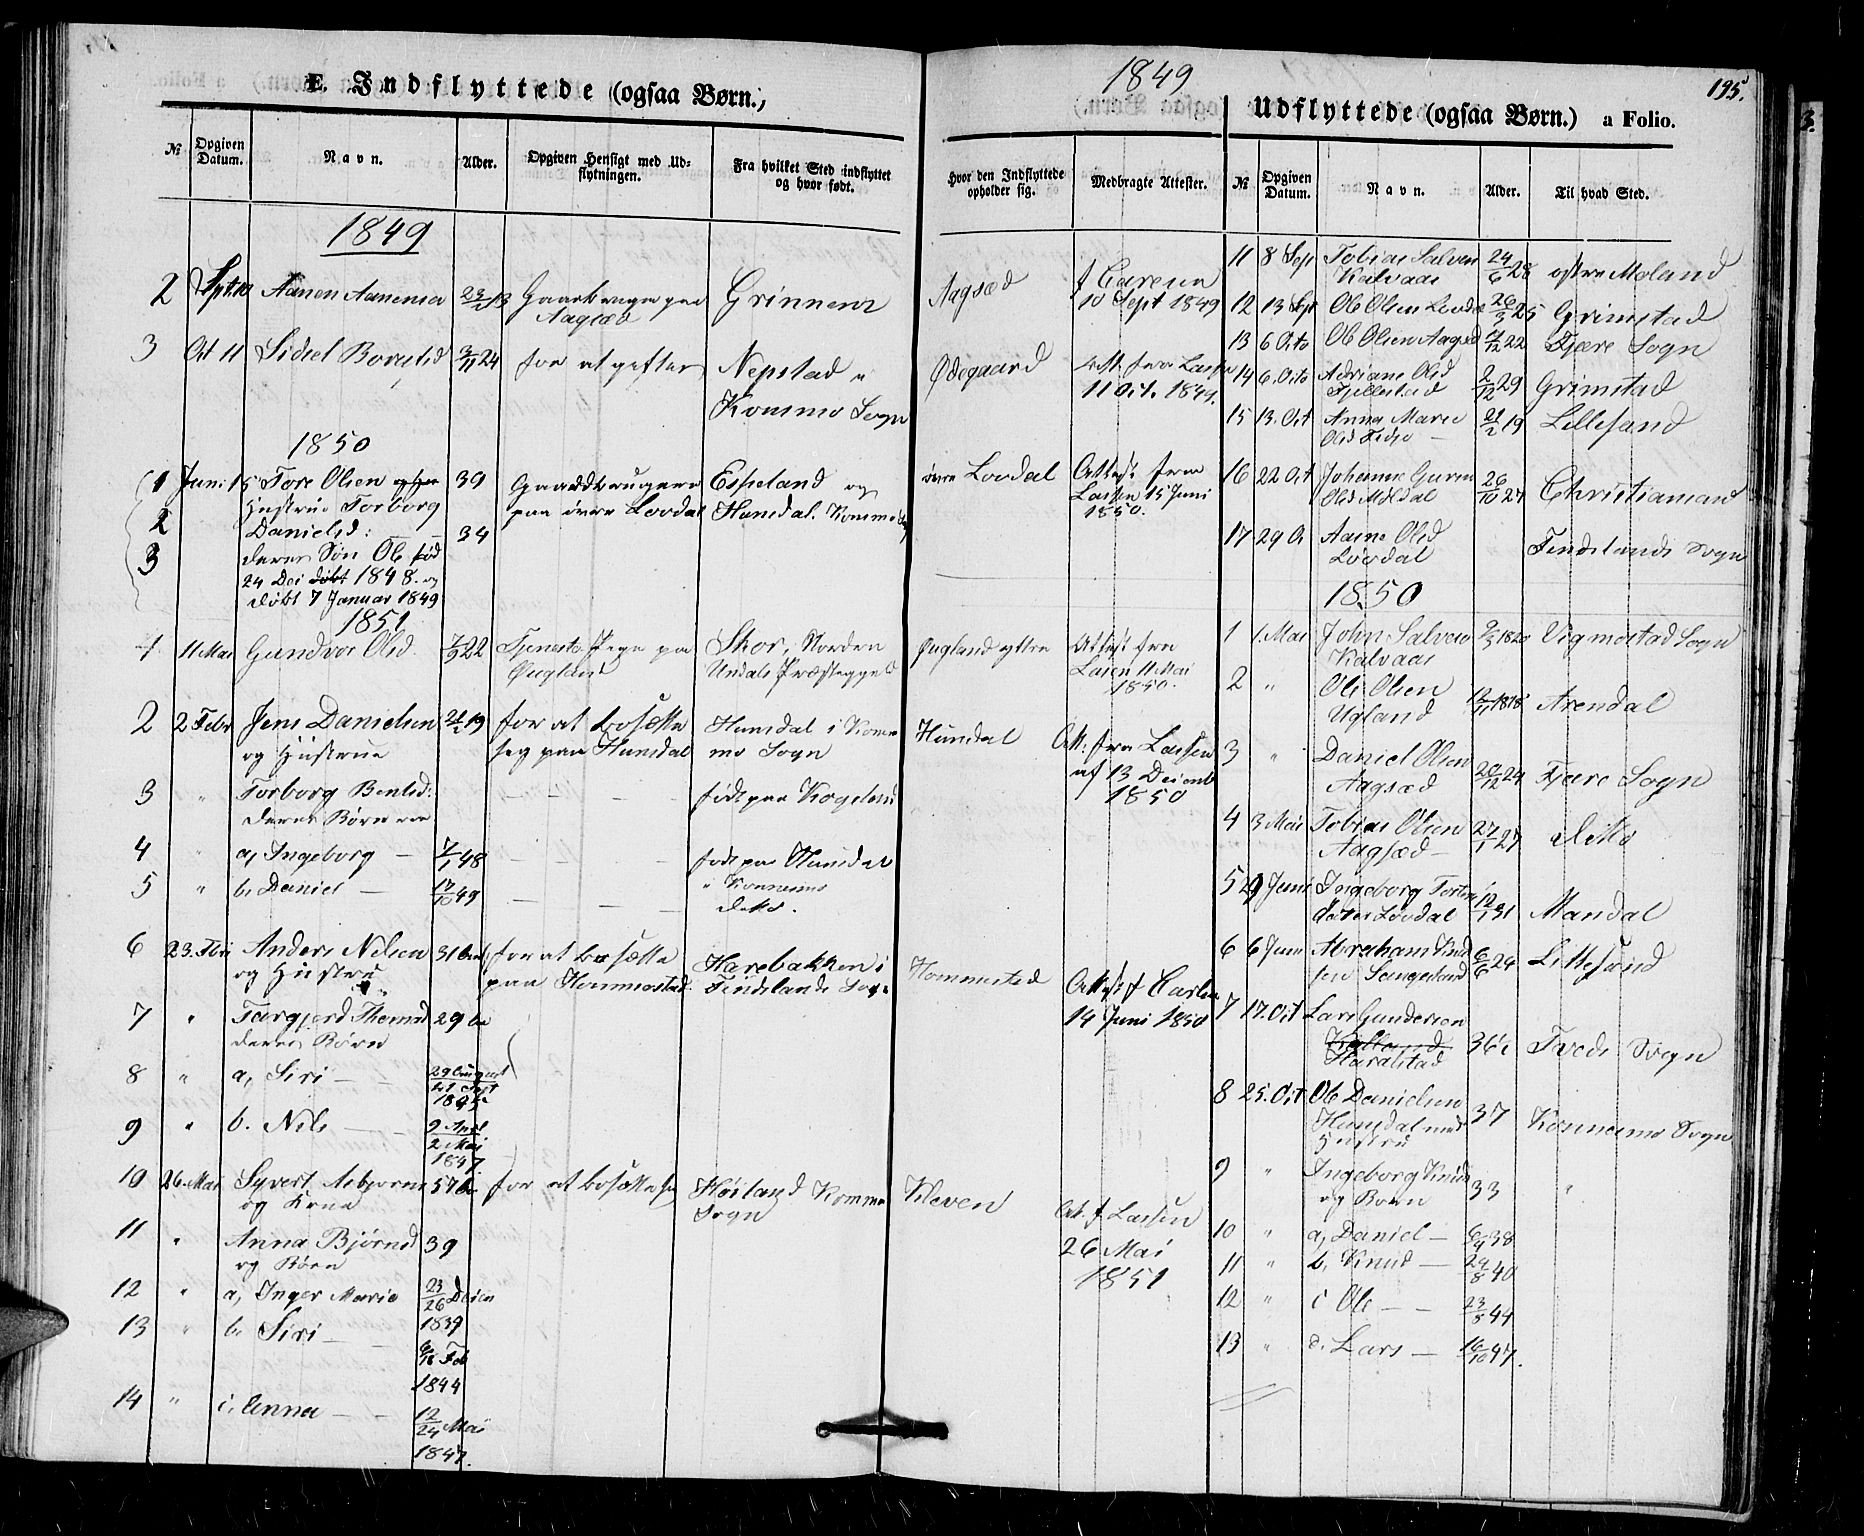 E. Indflyttede (ogsaa Børn.)
№
Opgiven Datum.
Navn.
Alder.
Opgiven Hensigt med Udflytningen.
Fra hvilket Sted indflyttet og hvor født.
1849
2 Spt. 10 Aanen Aanensen 23/2 13 Gaardbruger paa Aagsæd Grinnen
3 Oct 11 Sidsel Borufsd 3/11 24 for at giftes Nepstad
Konsmo Sogn
1850
1 Juni 15 Tore Olsen og hans 39 Gaardbrugere Espeland og
2 Hustrue Torborg paa øvre Lovdal Hunsdal. Konsmo
Danielsd: 34
3 deres Søn Ole født
24 Dec døbt 1848. og
døbt 7 Januar 1849
1851
1 11 Mai Gundvor Olsd. 7/9 22 Tjeneste Pige paa Skor, Norden
Øugland Undals Præstegjeld
2 2 Febr Jens Danielsen 19 for at bosætte Hunsdal i Kons
og Hustrue seg paa Hunsdal mo Sogn
3 " Torborg Bentsd: — — — født paa Kogeland
deres Børn
4 " a, Ingeborg — 7/1 48 født paa Hunsdal
5 " b, Daniel — 17/10 49 — — — " Konsmo
ditto.
6 23. Febr Anders Nilsen 31 for at bosætte Harebakken i
og Hustru paa Hommestad. Findslands Sogn
7 " Targjerd Thomsd 29
deres Børn
8 " a, Siri — 29 August
21 Sept
1845
9 " b. Nils — 9 April
2 Mai
1847.
10 26. Mai Syvert Asbjørns 57 for at bosætte sig Høiland Konsmo
og Kone Sogn
11 " Anna Bjørnsd 39
og Børn
12 " a, Inger Marie 23/26 Decem
1839
13 " b, Siri — 6/18 Feb
1844
14 " c, Anna — 12/24 Mai
1847.
1849
Hvor den Indflyttede opholder sig.
Medbragte Attester.
Aagsæd f Carsen
10 Sept 1849
Ødegaard Att. fra Lassen
11 Oct. 1849.
øvre Lovdal Attest fra
Lassen 15 Juni
1850.
Øugland yttre Attest fra
Lassen 11 Mai
1850.
Hunsdal Att. fra Lassen
af 13 Decemb
1850
Hommestad Attest f Carlsen
14 Juni 1850
Kleven Att. f Lassen
26 Mai
1851
195.
Udflyttede (ogsaa Børn.) a Folio.
№
Opgiven Datum.
Navn.
Alder.
Til hvad Sted.
11 8 Sept Tobias Salvesen 24/6 28 østre Moland
Kalvaas
12 13 Sept Ole Olsen Lovdal 26/3 25 Grimstad
13 6 Octo Ole Olsen Aagsæd 7/12 22 Fjære Sogn
14 6. Octo Adriane Olsd 2/12 29 Grimstad
Fjellestad
15 13. Oct Anna Marie 21/2 19 Lillesand
Olsd
16 22 Oct Johanne Guren 26/10 27 Christiansand
Olsd
17 29 O Aasne Olsd Findslands Sogn
Løvdal
1850
1 1. Mai John Salvesen 9/3 1820 Vigmostad Sogn
Kalvaas
2 " Ole Olsen 12/11 1818 Arendal
Ugland
3 " Daniel Olsen 20/12 24 Fjære Sogn
Aagsæd
4 3 Mai Tobias Olsen 27/1 27 ditto
Aagsæd —
5 29 Juni Ingeborg Torbjørns 12/1 31 Mandal
datter Lovdal
6 6 Juni Abraham Knud 6/6 24 Lillesand
sen Sangesland
7 17. Oct Lars Gundersen
Haraldstad 36 Tveds Sogn
8 25. Oct Ole Danielsen 37 Konsmo Sogn
Hunsdal med
Hustru
9 " Ingeborg Knudsd 33 "
og Børn
10 " a, Daniel — 6/4 38
11 " b, Knud — 29/8 40
12 " c Ole — — 23/5 44
13 " d. Lars — 16/10 47.